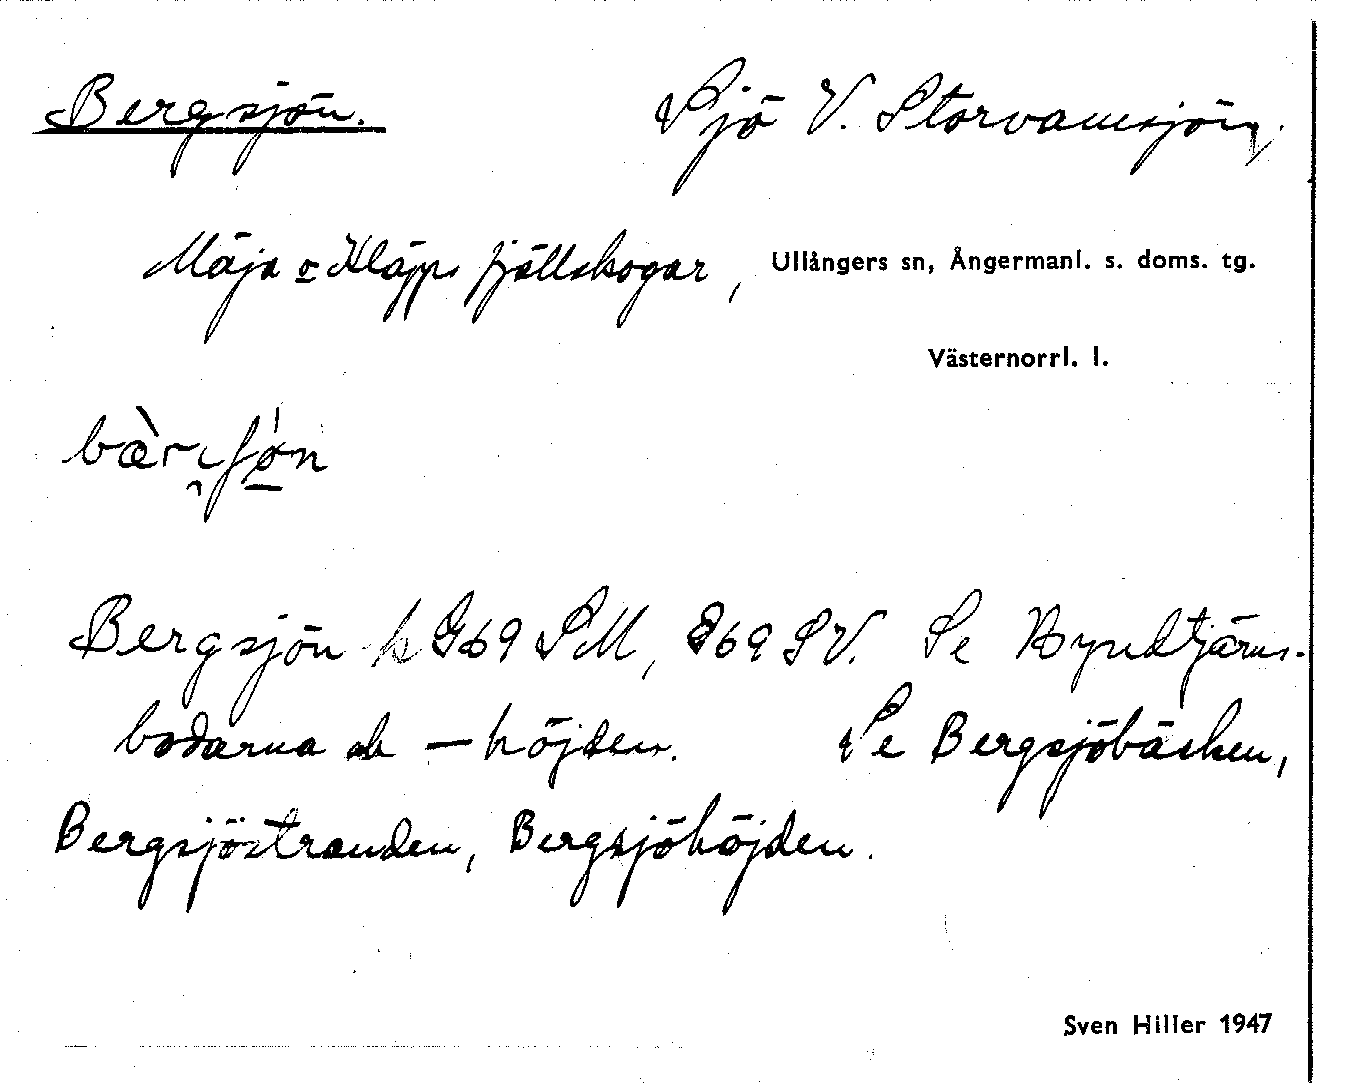 Bergsjön. Sjö V. Storvamsjön
Mäja o Kläpps fjällskogar, Ullångers sn, Ångermanl. s. doms. tg.
Västernorrl. l.
Bergsjön k G69 SM, 869 SV. Se
bodarna o -höjden. Se Bergsjöbäcken,
Bergsjöstranden, Bergsjöhöjden.
Sven Hiller 1947